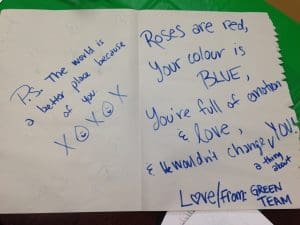 P.S. The world is
a better place because
of you
X ☺ X ☺ X
Roses are red,
Your colour is
BLUE,
You're full of emotion
& love,
& We wouldn't change YOU!
a thing
about
L♡ve/From: GREEN
TEAM